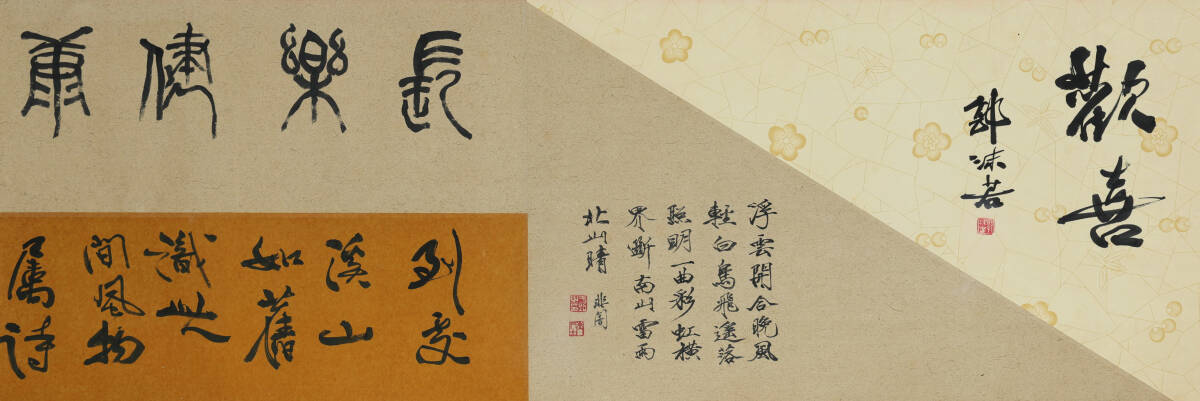 歡喜
郭沫若
浮雲開合晚風
輕白鳥飛邊落
照明一曲彩虹橫
界斷南山雷雨
北山晴
非闇
長樂健康
到處
溪山
如舊
識此
間風物
屬詩